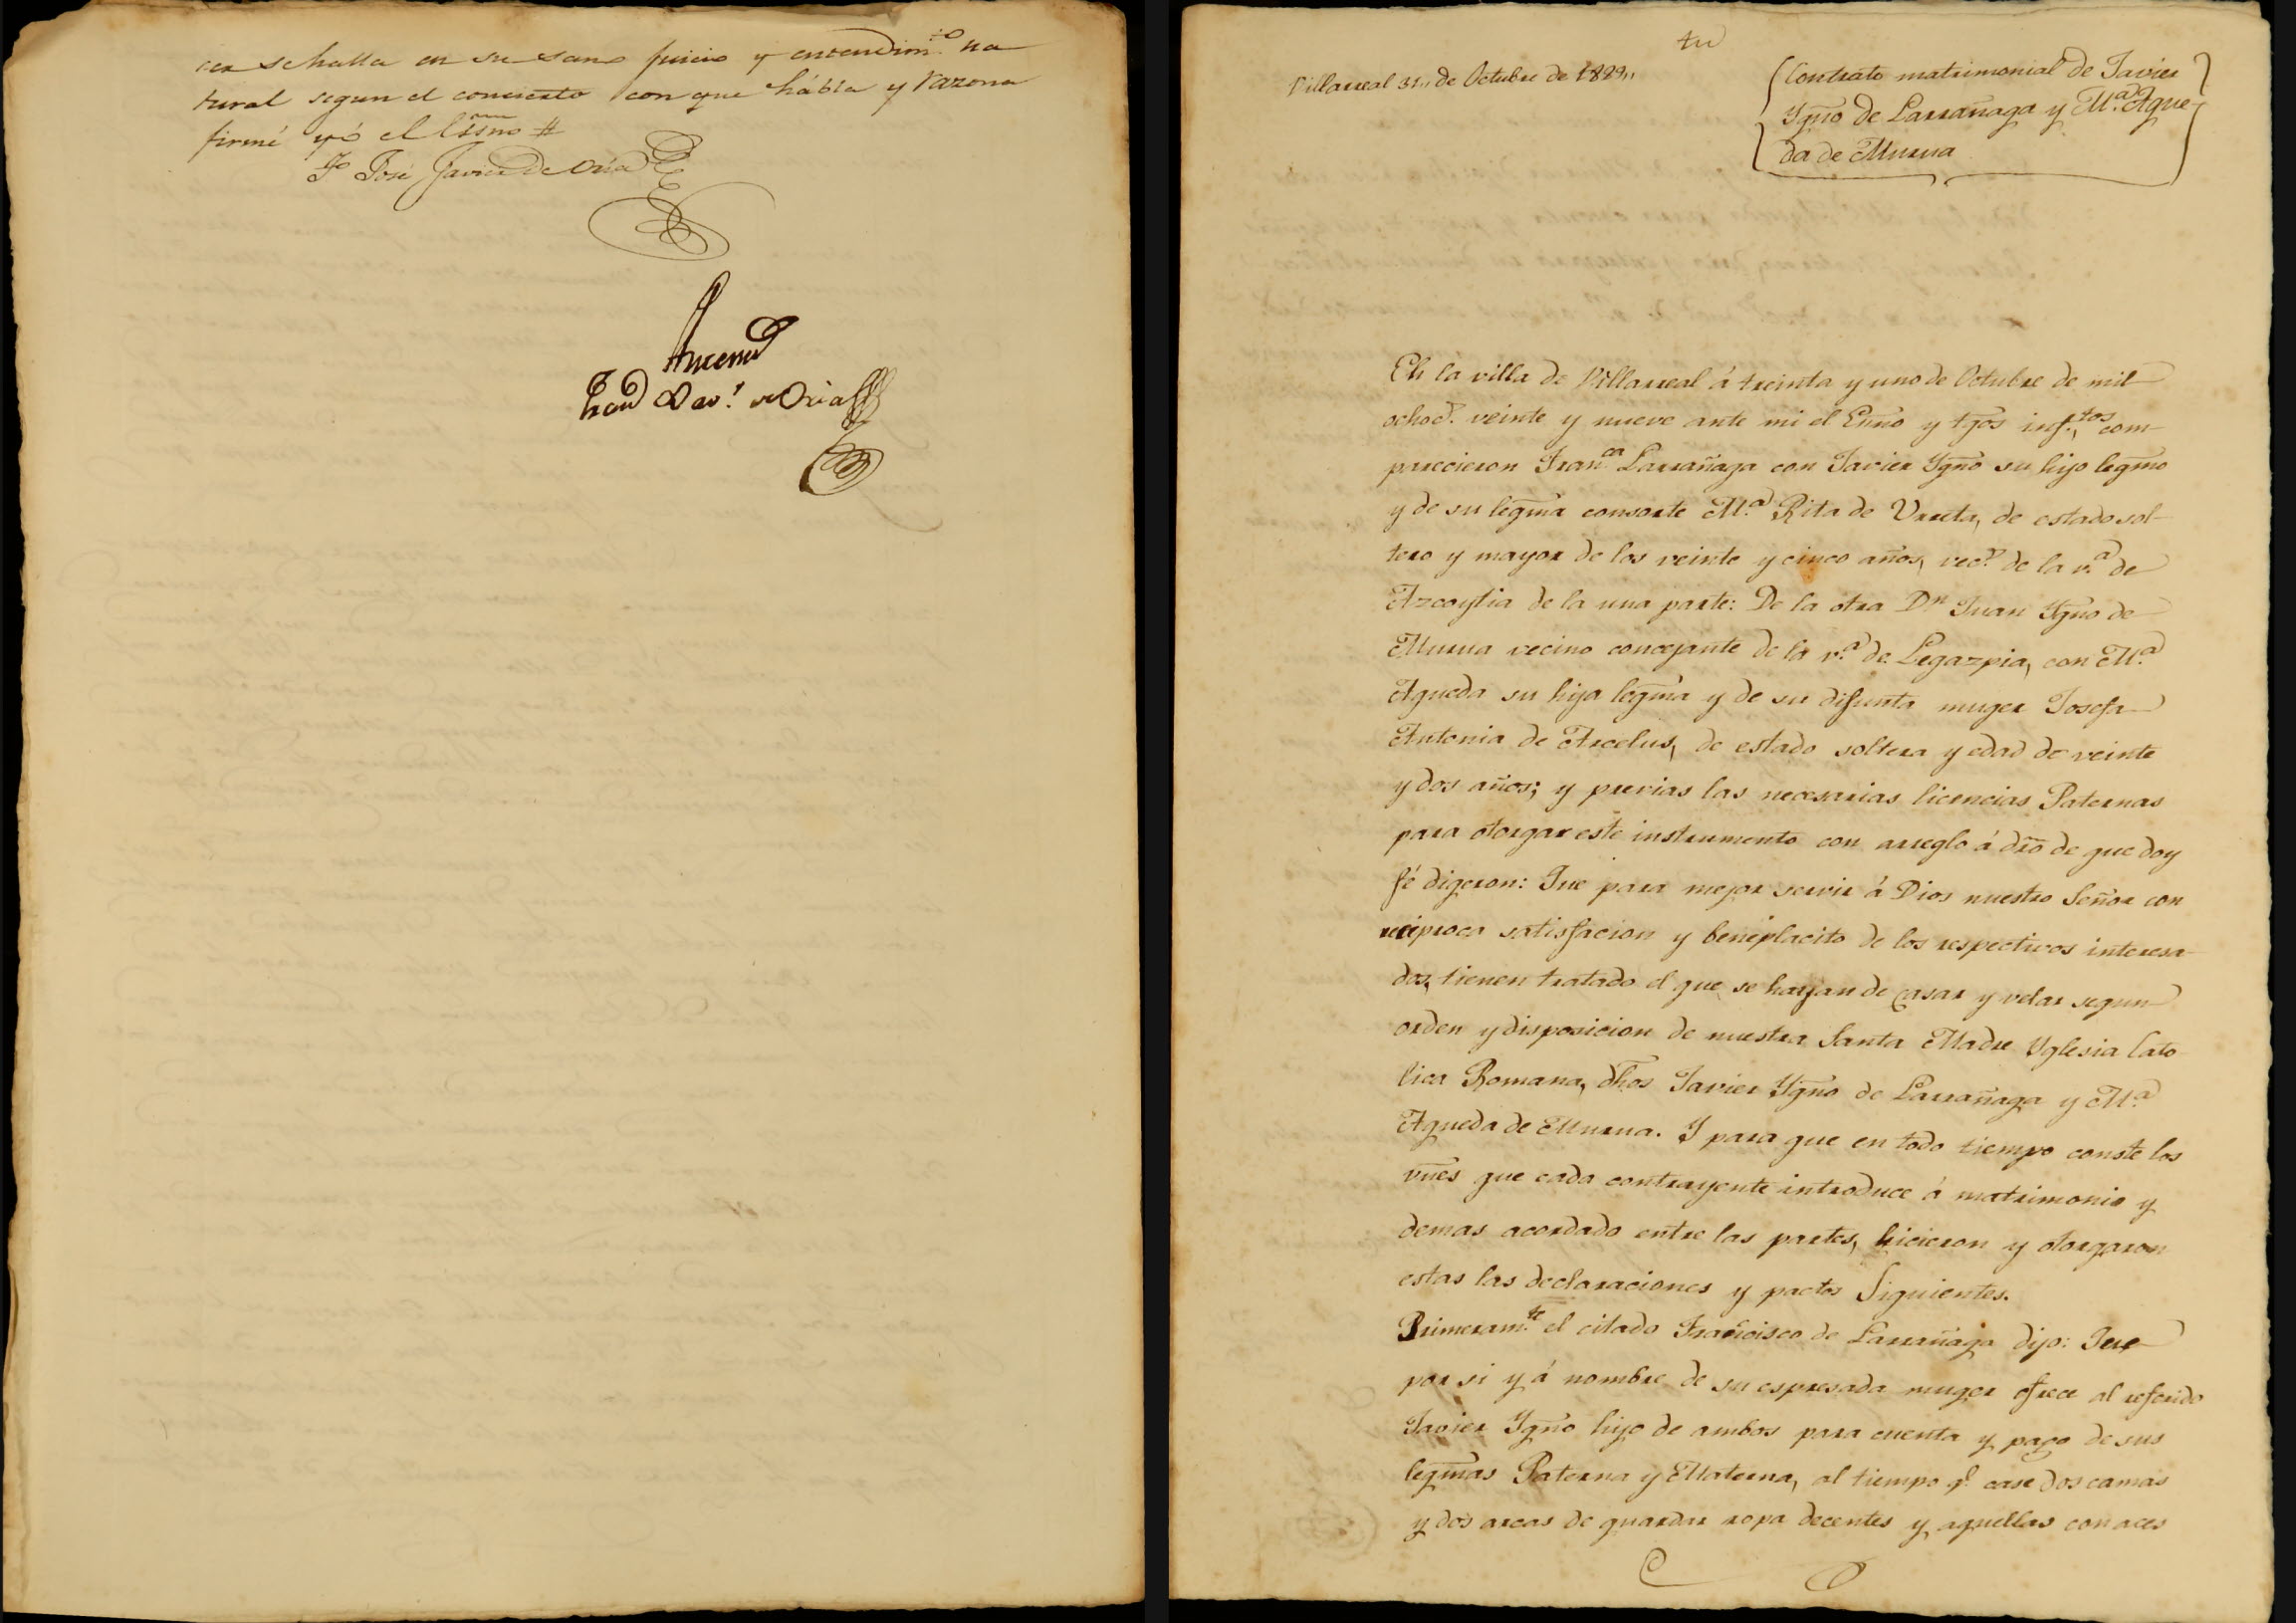 cer se halla en su sano juicio y entendim.to na
tural segun el concierto con que hábla y razona
firmé yó el Essno #
Jo José Javier de Oria
Antemi
Fran.co Xav.r de Oria
Villarreal 31,, de Octubre de 1829,,
Contrato matrimonial de Javier
Ygno de Larrañaga y M.a Ague
da de Murua
En la villa de Villarreal á treinta y uno de Octubre de mil
ochoc.s veinte y nueve ante mi el Esno y tgos infr.tos com
parecieron Fran.co Larrañaga con Javier Ygno su hijo legmo
y de su legma consorte M.a Rita de Urreta, de estado sol-
tero y mayor de los veinte y cinco años, vec.s de la v.a de
Azcoytia de la una parte: De la otra Dn Juan Ygno de
Murua vecino concejante de la v.a de Legazpia, con M.a
Agueda su hija legma y de su difunta muger Josefa
Antonia de Arcelus, de estado soltera y edad de veinte
y dos años; y previas las necesarias licencias Paternas
para otorgar este instrumento con arreglo á dro de que doy
fé digeron: Que para mejor servir á Dios nuestro Señor con
reciproca satisfacion y beneplacito de los respectivos interesa-
dos, tienen tratado el que se hayan de casar y velar segun
orden y disposicion de nuestra Santa Madre Yglesia Cato
lica Romana, dhos Javier Ygno de Larrañaga y M.a
Agueda de Murua. Y para que en todo tiempo conste los
vnes que cada contrayente introduce á matrimonio y
demas acordado entre las partes, hicieron y otorgaron
estas las declaraciones y pactos Siguientes.
Primeram.te el citado Francisco de Larrañaga dijo: Que
por si y á nombre de su espresada muger ofrece al referido
Javier Ygno hijo de ambos para cuenta y pago de sus
legmas Paterna y Materna, al tiempo q.e case dos camas
y dos arcas de guardar ropa decentes y aquellas con aces